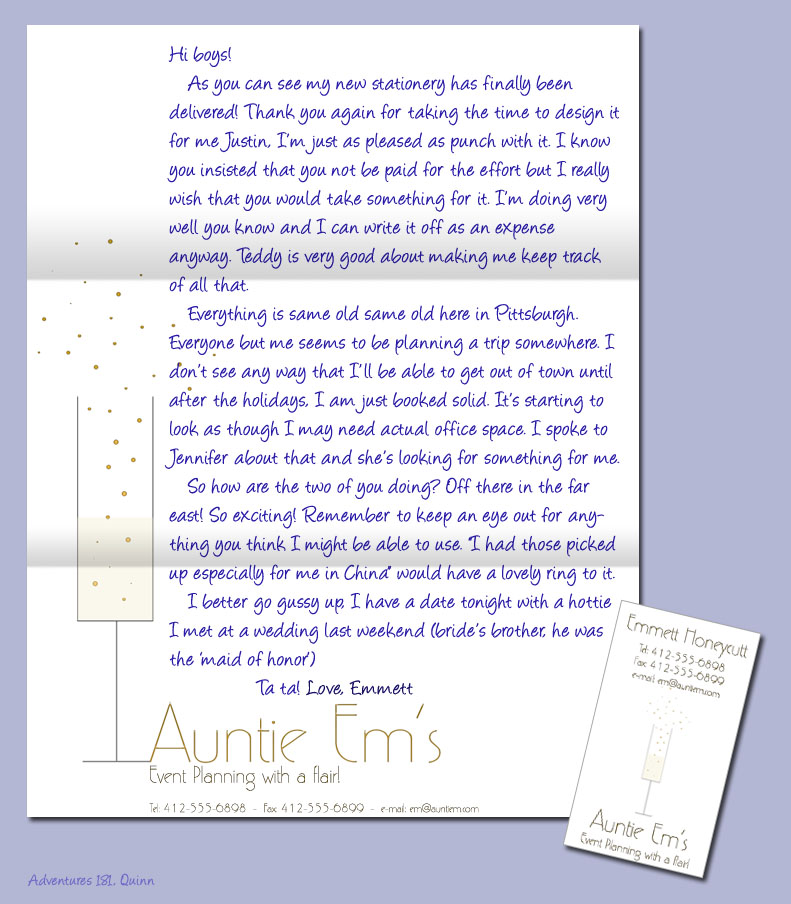 Hi boys!
As you can see my new stationery has finally been
delivered! Thank you again for taking the time to design it
for me Justin, I'm just as pleased as punch with it. I know
you insisted that you not be paid for the effort but I really
wish that you would take something for it. I'm doing very
well you know and I can write it off as an expense
anyway. Teddy is very good about making me keep track
of all that.
Everything is same old same old here in Pittsburgh.
Everyone but me seems to be planning a trip somewhere. I
don't see any way that I'll be able to get out of town until
after the holidays, I am just booked solid. It's starting to
look as though I may need actual office space. I spoke to
Jennifer about that and she's looking for something for me.
So how are the two of you doing? Off there in the far
east! So exciting! Remember to keep an eye out for any-
thing you think I might be able to use. "I had those picked
up especially for me in China" would have a lovely ring to it.
I better go gussy up, I have a date tonight with a hottie
I met at a wedding last weekend (bride's brother, he was
the 'maid of honor')
Ta ta! Love, Emmett
Auntie Em's
Event Planning with a flair!
Tel: 412-555-6898 - Fax: 412-555-6899 - e-mail: em@auntiem.com
Emmett Honeycutt
Tel: 412-555-6898
Fax: 412-555-6899
e-mail: em@auntiem.com
Auntie Em's
Event Planning with a flair!
Adventures 181. Quinn